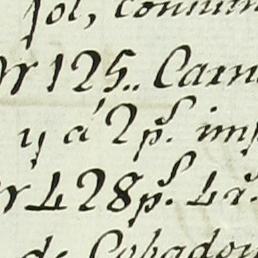 sol, consum
Pr 125.. Carn
y á 2 ps. imp
Pr 428 ps. 4 r.
de Cobadon